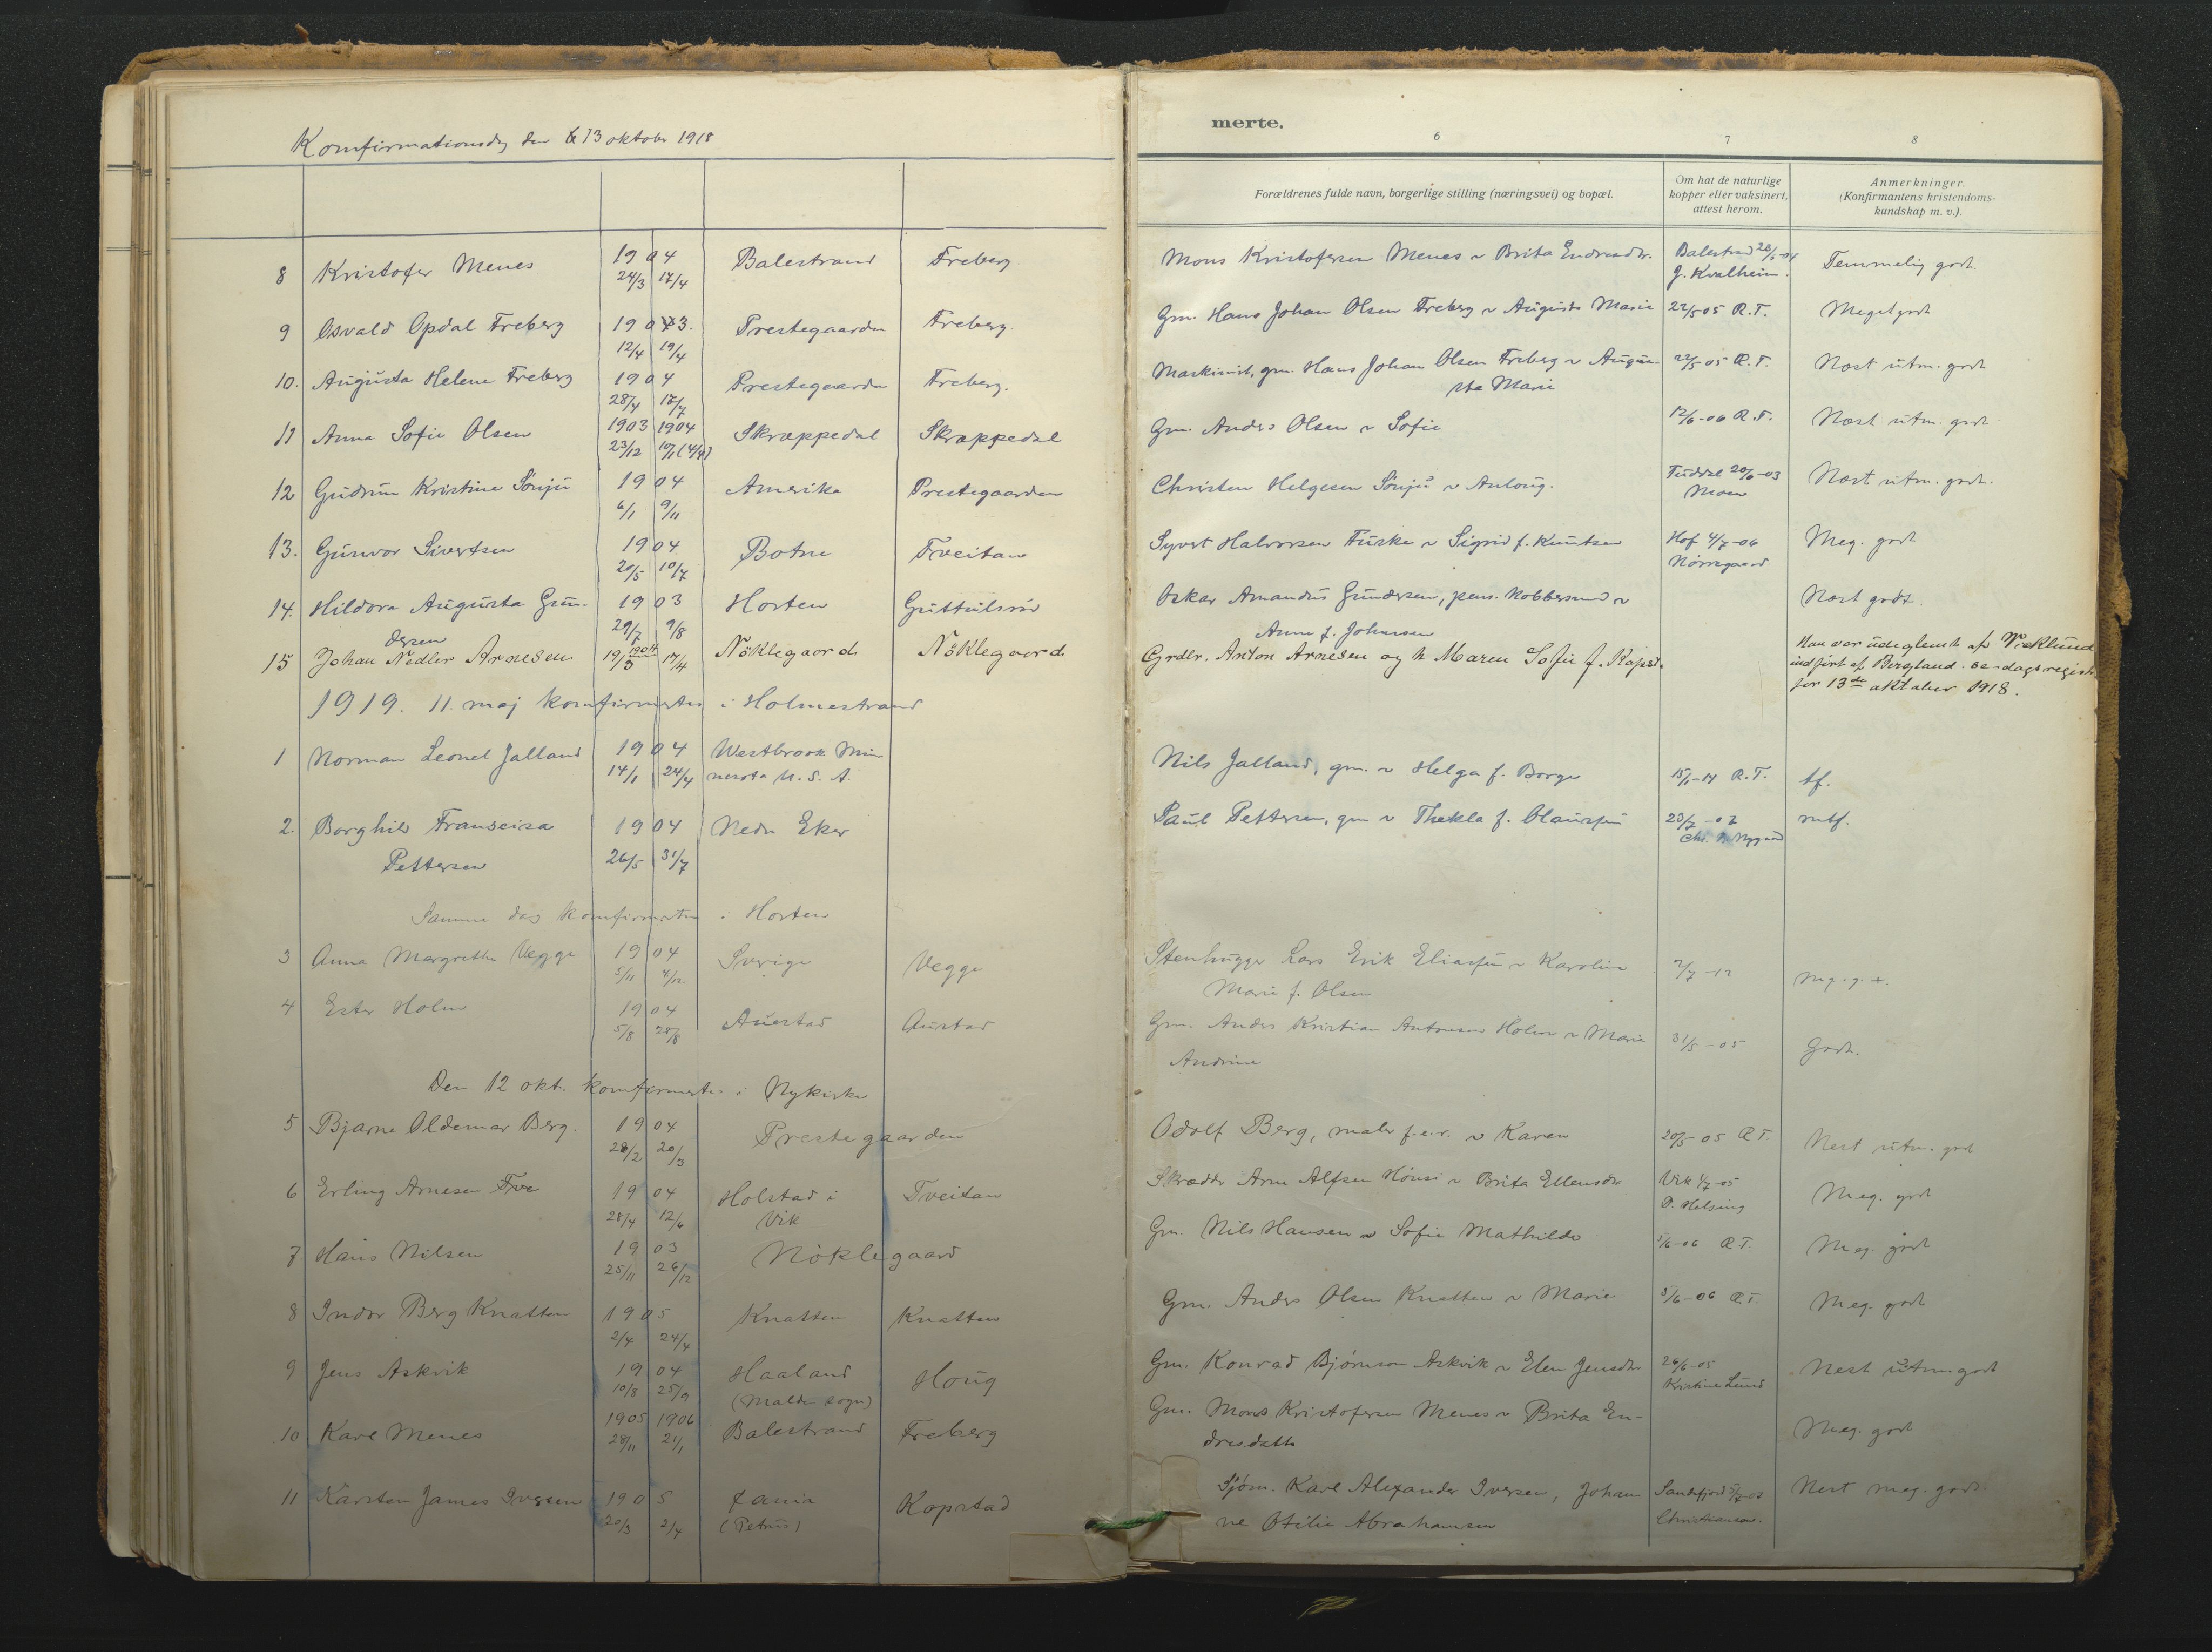 Komfirmationsdag den 13 oktober 1918
merte.
6 7 8
Forældrenes fulde navn, borgerlige stilling (næringsvei) og bopæl. Om hat de naturlige kopper eller vaksinert, attest herom. Anmerkninger. (Konfirmantens kristendoms-kundskap m. v.).
8 Kristofer Menes 1904 24/3 17/4 Balestrand Freberg. Mons Kristofersen Menes v Brita Endresdtr. Balestrand J. Kvalheim. Temmelig godt.
9 Osvald Opdal Freberg 1903. 12/4 19/4 Prestegaarden Freberg. Gm. Hans Johan Olsen Freberg v Augusta Marie 22/5 05 R.T. Meget godt
10. Augusta Helene Freberg 1904 28/4 17/7 Prestegaarden Freberg. Maskinist, gm. Hans Johan Olsen Freberg v Augu-
sta Marie 22/5 05 R.T. Næst utm. godt
11 Anna Sofie Olsen 1903 1904 23/12 10/1 (4/4) Skrappedal Skrappedal Gm. Anders Olsen v Sofie 12/6-06 R.T. Næst utm. godt
12 Gudrun Kristine Sönju 1904 6/1 9/11 Amerika Prestegaarden Christen Helgesen Sönju v Anloug. 20/6-03 Moen Næst utm. godt.
13. Gunvor Sivertsen 1904 20/5 10/7 Botne Tveitan Syvert Halvorsen Fuske v Sigrid f. Knutsen Hof 4/7-06 Nörregaard Meg. godt
14. Hildora Augusta Gun-
dersen 1903 29/7 9/8 Horten Guttulsrød Oskar Amandus Gundersen, pens. Kobbersmed v
Anna f. Johansen Næst godt.
15 Johan Nedler Arnesen 1904 19/3 17/4 Nöklegaard Nöklegaard Grdbr. Anton Arnesen og h Maren Sofie f. Kapst. Han var udeglemt af Wieklund
indført af Bergland. se-dagsregist.
for 13de oktober 1918.
1919. 11. maj komfirmertes i Holmestrand
1 Norman Leonel Jalland 1904 14/1 24/4 Westbrook Min-
nesota U. S. A. Nils Jalland, gm. v Helga f. Borge 15/1-14 R.T. tf.
2. Borghild Franseisa
Pettersen 1904 26/5 31/7 Nedre Eker Paul Pettersen, gm v Thekla f. Olaussen 23/7-07 mtf.
Samme dag komfirmertes i Horten
3 Anna Margrethe Vegge 1904 5/11 4/12 Sverige Vegge Stenhugger Lars Erik Eliassen v Karoline
Marie f. Olsen 2/7-12 Mg. g. +.
4 Ester Holm 1904 5/8 28/8 Austad Austad Gm. Anders Kristian Antonsen Holm v Marie
Andrine 31/5-05 Godt.
Den 12 okt. komfirmertes i Nykirke
5 Bjarne Oldemar Berg. 1904 28/2 20/3 Prestegaarden Adolf Berg, maler f.e.r. v Karen 20/5-05 R.T. Nest utm. godt
6 Erling Arnesen 1904 28/4 12/6 Holstad i
Vik Tveitan Skrædder Arne Alfsen Hönsi v Brita Ellensdtr Vik 4/7-05
P. Helsing Meg. godt
7 Hans Nilsen 1903 25/11 26/12 Nöklegaard Gm. Nils Hansen v Sofie Mathilde 5/6-06 R.T. Meg. godt
8 Indor Berg Knatten 1905 2/4 24/4 Knatten Knatten Gm. Anders Olsen Knatten v Marie 5/6-06 R.T. Meg. godt
9 Jens Askvik 1904 10/8 25/9 Haaland
(Malde sogn) Houg Gm. Konrad Bjørnson Askvik v Elen Jensdtr 26/6-05
Kristine Lund Nest utm. godt
10 Karl Menes 1905 1906 28/11 21/1 Balestrand Freberg Gm. Mons Kristofersen Menes v Brita En-
dresdatter Meg. godt
11 Karsten James Iversen 1905 20/3 2/4 (Petrus) Kopstad Sjøm. Karl Alexander Iversen, Johan
ne Otilie Abrahamsen Sandefjord
Christiansen. Nest meg. godt.